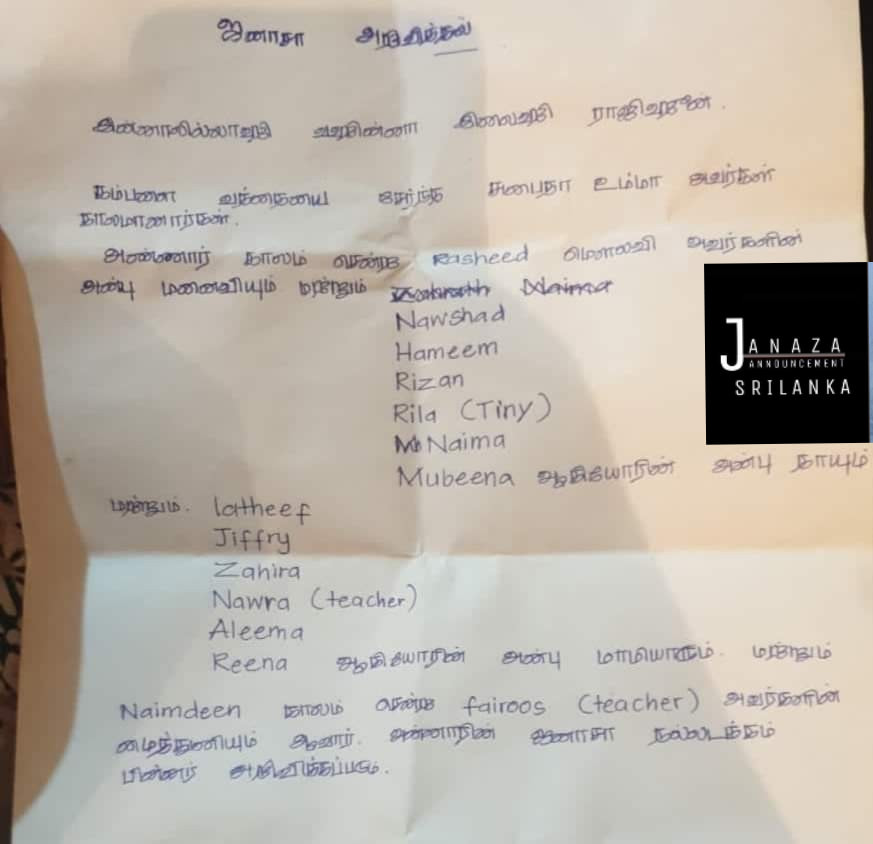 ஜனாசா அறிவித்தல்
இன்னாலில்லாஹி வஇன்னா இலைஹி ராஜிஊன்.
கம்பளை வத்தையை சேர்ந்த உம்மா அவர்கள்
காலமானார்கள்.
அன்னார் காலம் சென்ற Rasheed மௌலவி அவர்களின்
அன்பு மனைவியும் மற்றும்
Nawshad
Hameem
Rizan
Rila (Tiny)
Naima
Mubeena ஆகியோரின் அன்பு தாயும்
மற்றும். latheef
Jiffry
Zahira
Nawra (teacher)
Aleema
Reena ஆகியோரின் அன்பு மாமியாரும். மற்றும்
Naimdeen காலம் சென்ற fairoos (teacher) அவர்களின்
மைத்துனியும் ஆவார். அன்னாரின் ஜனாசா நல்லடக்கம்
பின்னர் அறிவிக்கப்படும்.
JANAZA
ANNOUNCEMENT
SRILANKA